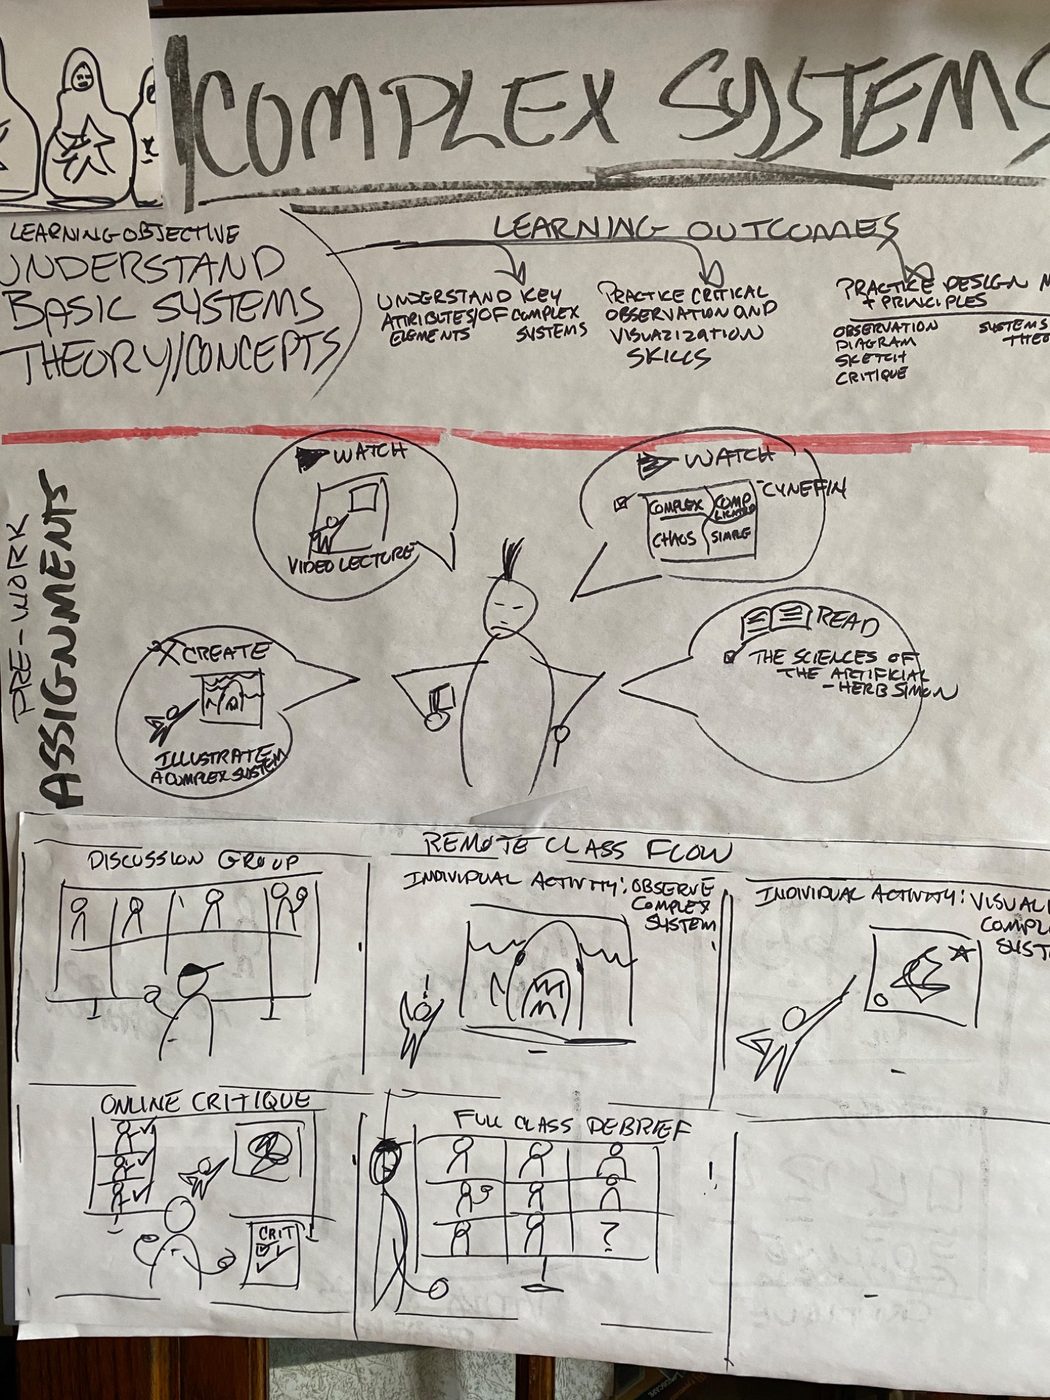 COMPLEX SYSTEMS
LEARNING OBJECTIVE
UNDERSTAND
BASIC SYSTEMS
THEORY/CONCEPTS
LEARNING OUTCOMES
UNDERSTAND KEY
ATRIBUTES/OF COMPLEX
ELEMENTS SYSTEMS
PRACTICE CRITICAL
OBSERVATION AND
VISUAZIZATION
SKILLS
PRACTICE DESIGN M
+ PRINCIPLES
OBSERVATION
DIAGRAM
SKETCH
CRITIQUE
SYSTEMS
THEO
PRE-WORK
ASSIGNMENTS
WATCH
VIDEO LECTURE
WATCH
CYNEFIN
COMPLEX
COMP
LICATED
CHAOS
SIMPLE
CREATE
ILLUSTRATE
A COMPLEX SYSTEM
READ
THE SCIENCES OF
THE ARTIFICIAL
-HERB SIMON
REMOTE CLASS FLOW
DISCUSSION GROUP
INDIVIDUAL ACTIVITY: OBSERVE
COMPLEX
SYSTEM
INDIVIDUAL ACTIVITY: VISUALI
COMPLE
SYST
ONLINE CRITIQUE
CRIT
FULL CLASS DEBRIEF
?